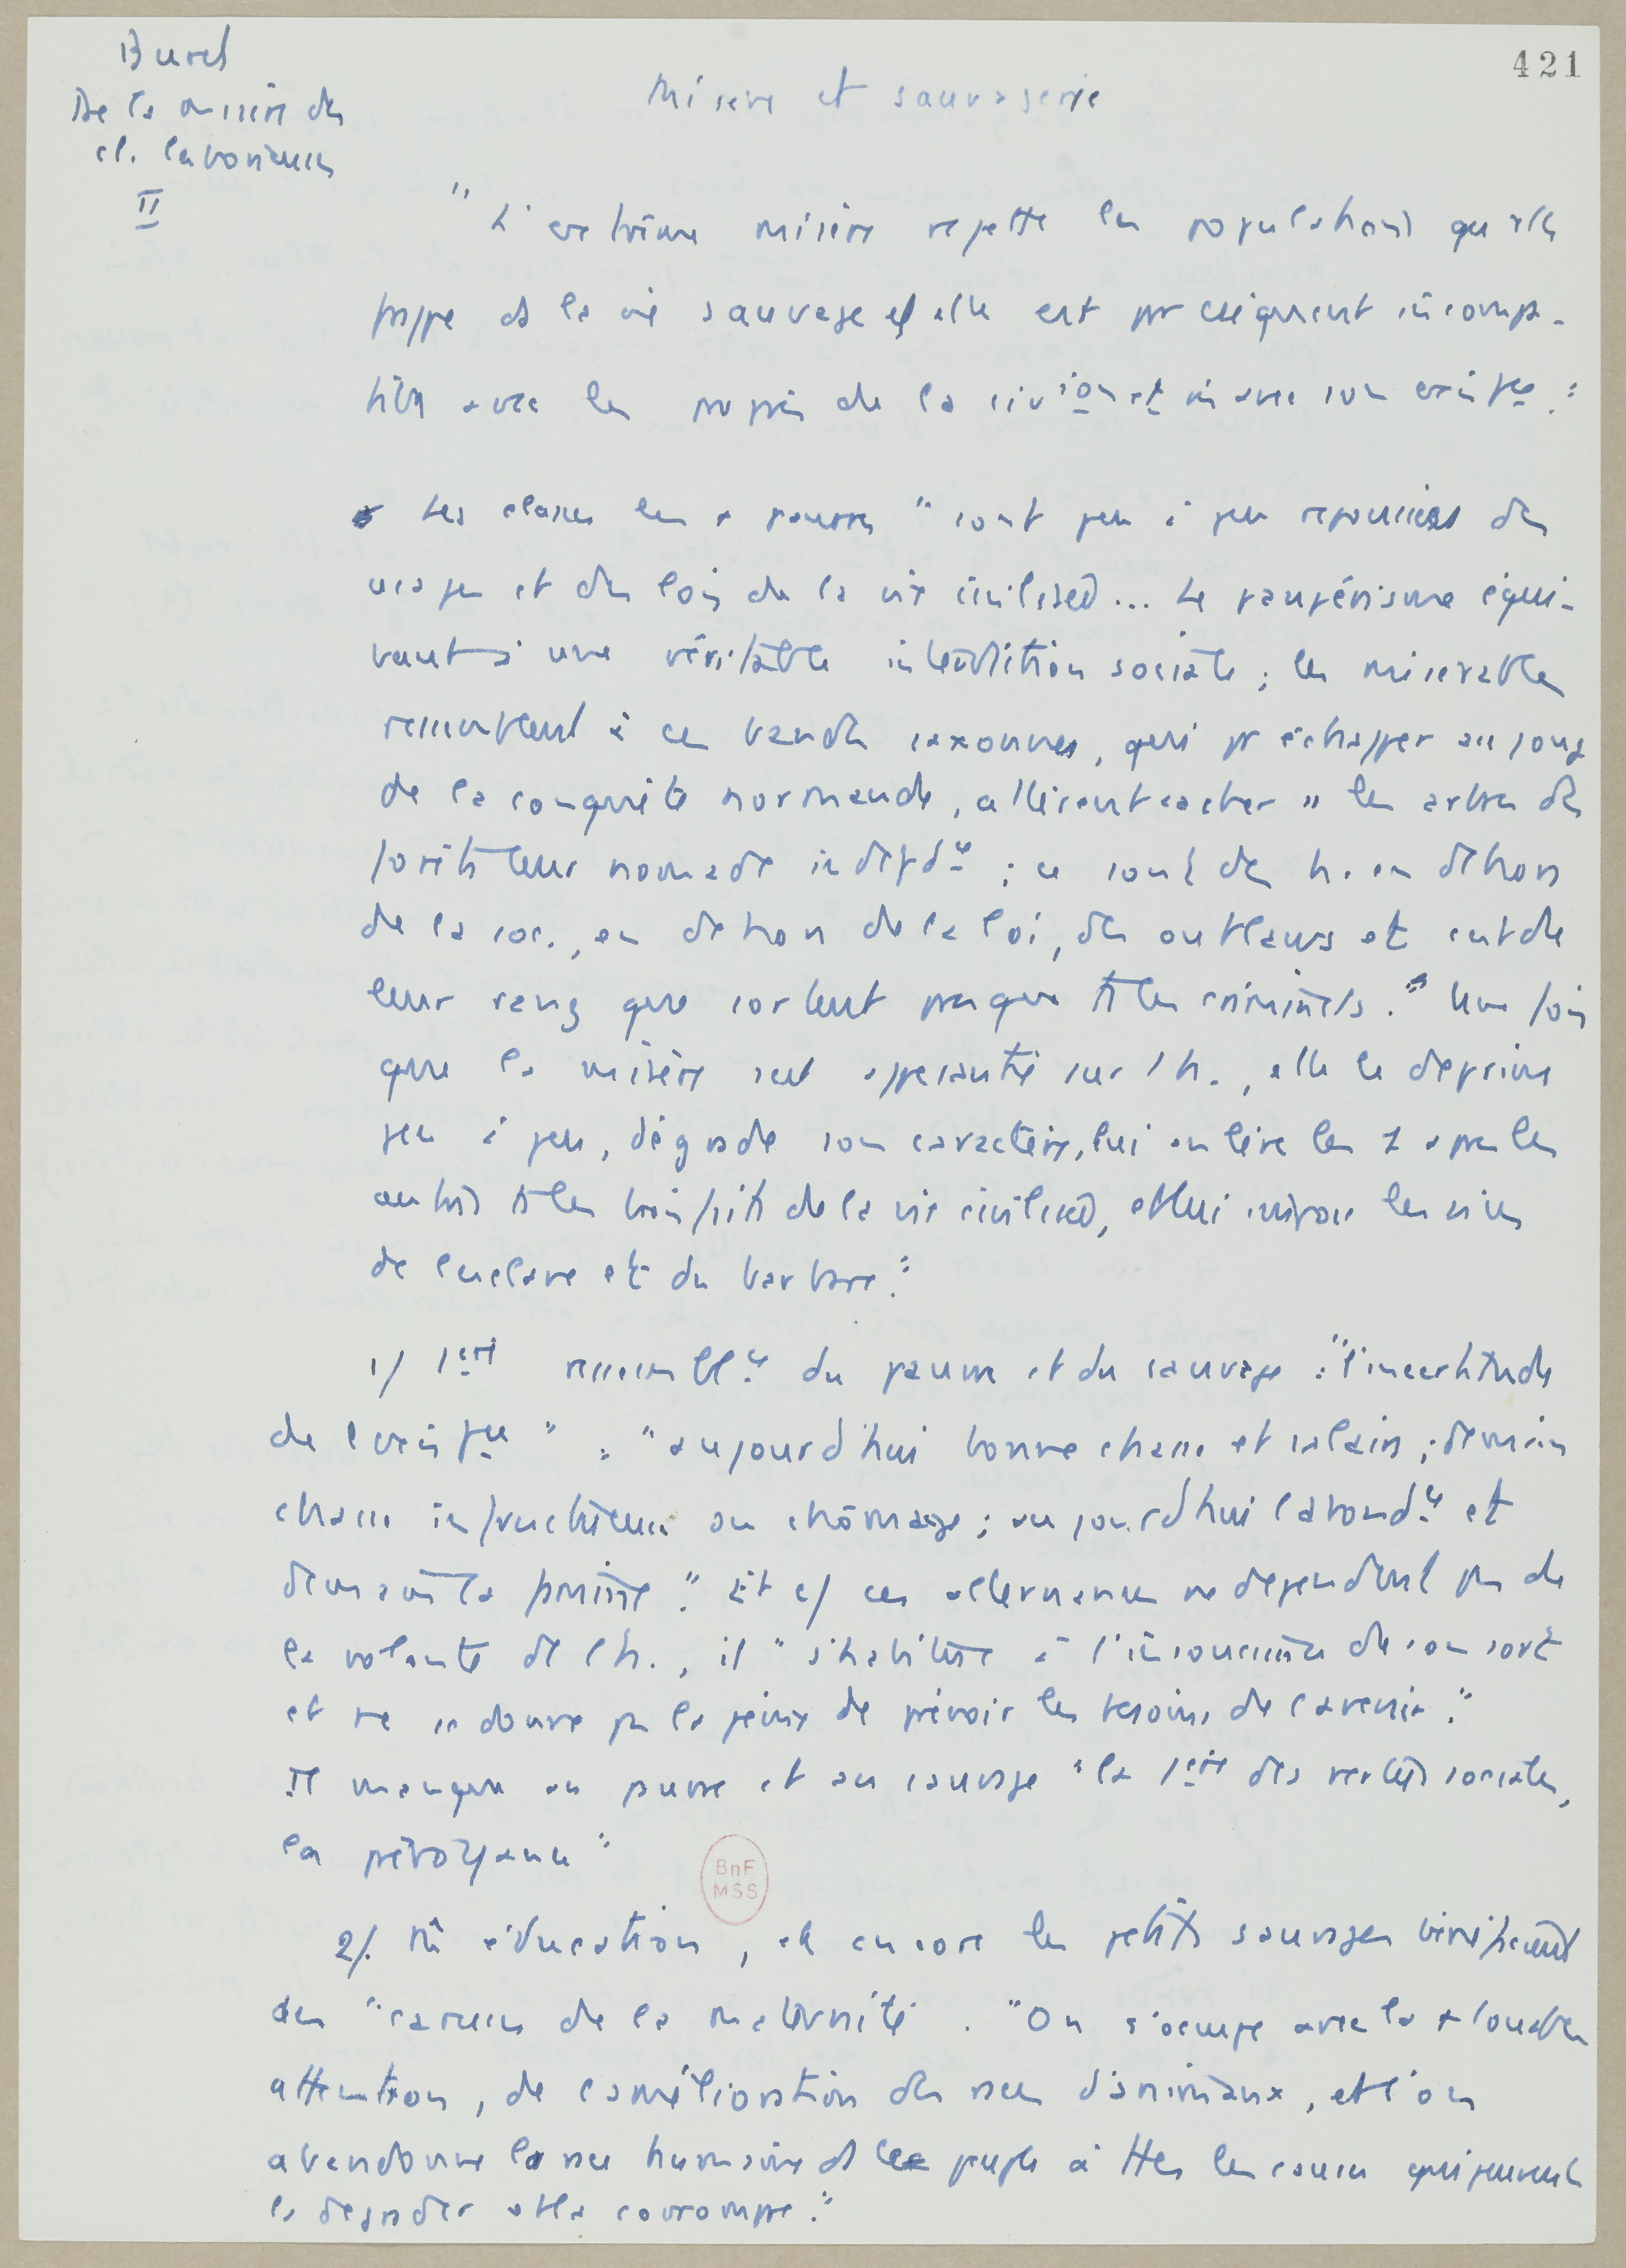 421
Buret
De la misère des
cl. laborieuses
II
Misère et sauvagerie
"L'extrême misère rejette les populations qu'elle
frappe ds la vie sauvage et elle est pr cséquent incompa-
tible avec les progrès de la civion et mê avec son existce."
Les classes les + pauvres "sont peu à peu repoussées des
usages et des lois de la vie civilisée... Le paupérisme équi-
vaut à une véritable interdiction sociale ; les misérables
ressemblent à ces bandes saxonnes, qui pr échapper au joug
de la conquête normande, allaient cacher ss les arbres des
forêts leur nomade indépdce ; ce sont des h. en dehors
de la soc., en dehors de la loi, des outlaws et c'est de
leur rang que sortent presque ts les criminels." Une fois
que la misère s'est appesantie sur l'h., elle le déprime
peu à peu, dégrade son caractère, lui enlève les 1 après les
autres ts les bienfaits de la vie civilisée, et lui impose les vices
de l'esclave et du barbare."
1/ 1ère ressemblce du pauvre et du sauvage : "l'incertitude
de l'existce" : "aujourd'hui bonne chasse et salaire ; demain
chasse infructueuse ou chômage ; aujourd'hui l'abondce et
demain la famine." Et c/ ces alternances ne dépendent pas de
la volonté de l'h., il "s'habitue à l'insouciance de son sort
et ne se donne pas la peine de prévoir les besoins de l'avenir."
Il manque au pauvre et au sauvage "la 1ère des vertus sociales,
la prévoyance"
BnF
MSS
2/. Mê éducation, et encore les petits sauvages bénéficient
des "caresses de la maternité". "On s'occupe avec la + louable
attention, de l'amélioration des races d'animaux, et l'on
abandonne la race humaine ds le peuple à ttes les causes qui peuvent
la dégrader et la corrompre."